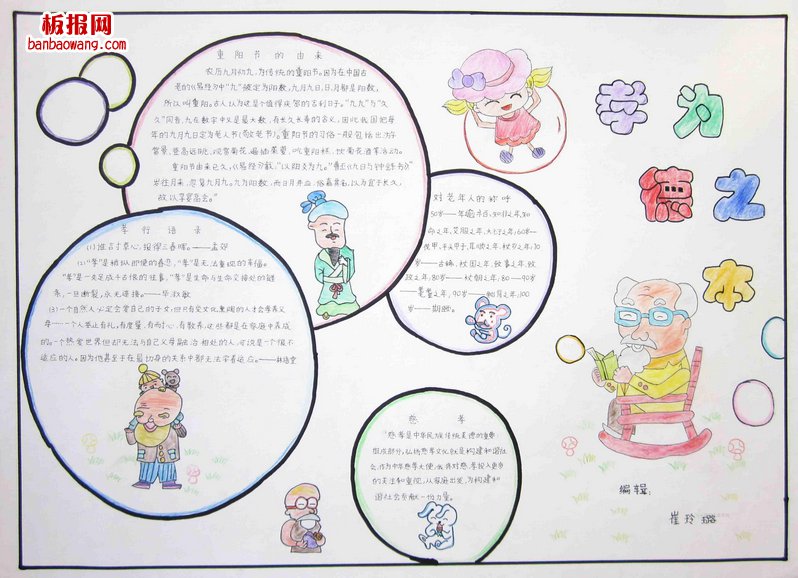 板报网
banbaowang.com
重阳节的由来
农历九月初九,为传统的重阳节。因为在中国古
老的《易经》中"九"被定为阳数,九月九日,日月都是阳数,
所以叫重阳。古人认为这是个值得庆贺的吉利日子。"九九"与"久
久"同音,九在数字中又是最大数,有长久长寿的含义,因此我国把每
年的九月九日定为老人节(敬老节)。重阳节的习俗一般包括出游
赏景、登高远眺、观赏菊花、遍插茱萸、吃重阳糕、饮菊花酒等活动。
重阳节由来已久,《易经》
"以阳爻为九。"
岁往月来,忽复九月九。九为阳数,而日月并应,俗嘉其名,以为宜于长久,
故以享宴高会。"
孝行语录
(1)谁言寸草心,报得三春晖。——孟郊
(2)"孝"是稍纵即逝的眷恋,"孝"是无法重现的幸福。
"孝"是一失足成千古恨的往事,"孝"是生命与生命交接处的链
条,一旦断裂,永无连接。——毕淑敏
(3)一个自然人必定会爱自己的子女,但只有受文化熏陶的人才会孝养父
母……一个人举止有礼,有度量,有耐心,有教养,这些都是在家庭中养成
的。一个热爱世界但却无法与自己父母融洽相处的人,可说是一个很不
适应的人。因为他甚至于在最切身的关系中都无法学着适应。——林语堂
对老年人的称呼
50岁——年逾半百、知非之年、知
命之年、艾服之年、大衍之年,60岁—
花甲、平头甲子、耳顺之年、杖乡之年,70
岁——古稀、杖国之年、致事之年、致
政之年,80岁——杖朝之年,80—90岁
——耄耋之年,90岁——鲐背之年,100
岁——期颐。
慈孝
"慈孝是中华民族传统美德的重要
组成部分,弘扬慈孝文化就是构建和谐社
会,作为中华慈孝大使,我将对慈、孝投入更多
的关注和重视,从家庭出发,为构建和
谐社会贡献一份力量。
孝为
德之
本
编辑:
崔玲璐